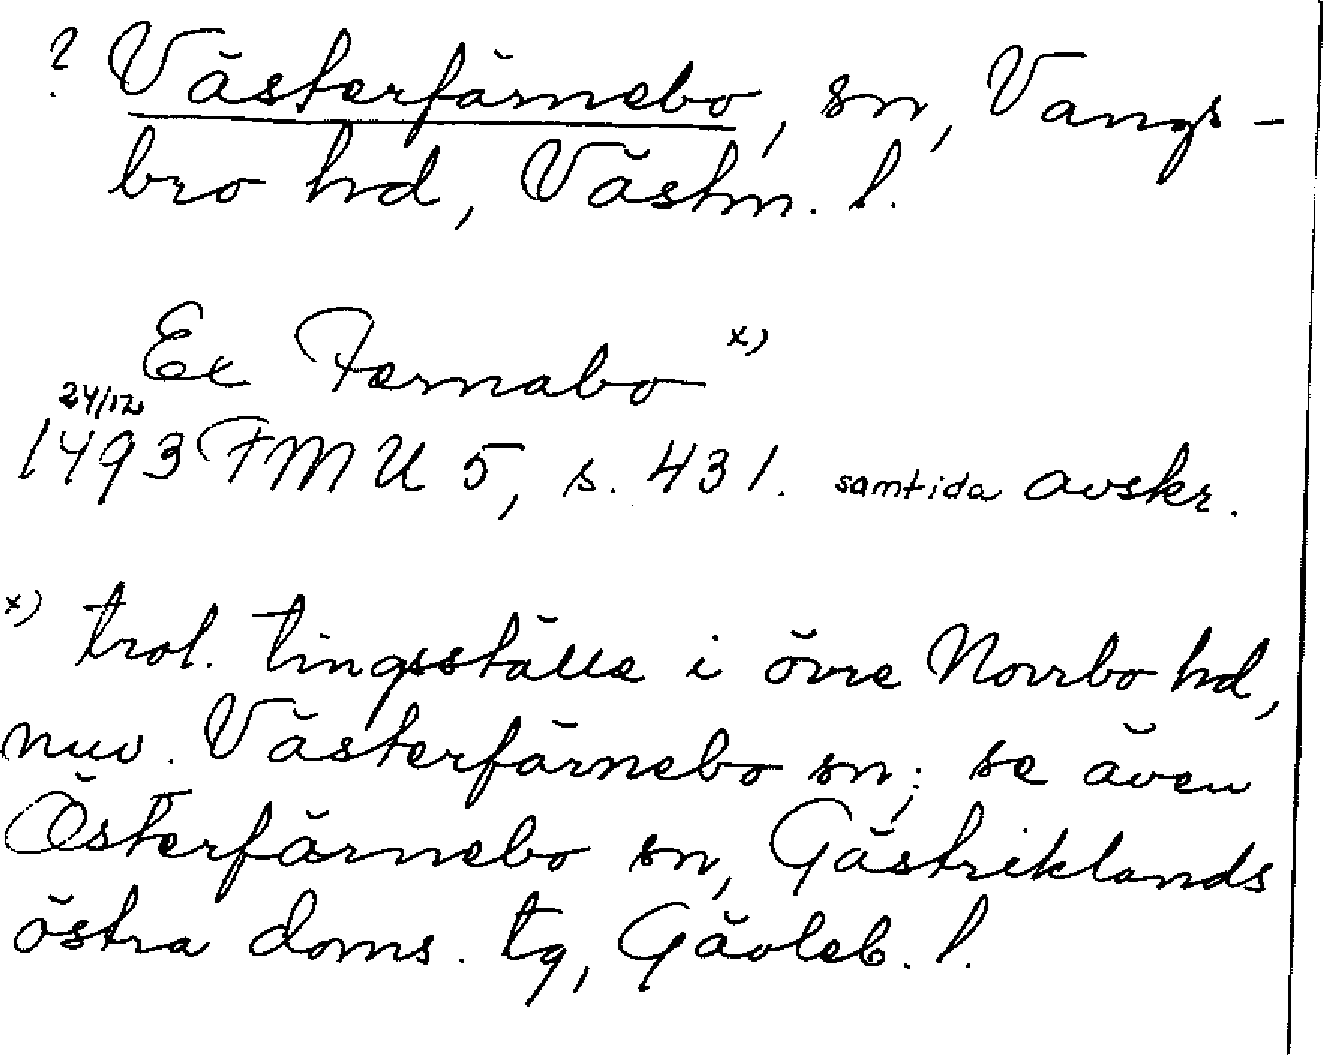 ? Västerfärnebo, sn, Vangs-
bro hd, Västm. l.
Ex Fernabo x)
24/12
1493 FMU 5, s. 431. samtida avskr.
x) trol. tingsställe i övre Norrbo hd,
nuv. Västerfärnebo sn; se även
Österfärnebo sn, Gästriklands
östra doms. tg, Gävleb. l.